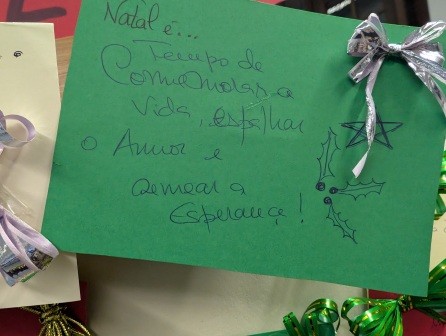 Natal é...
Tempo de
Comemorar a
Vida, espalhar
o Amor e
semear a
Esperança!